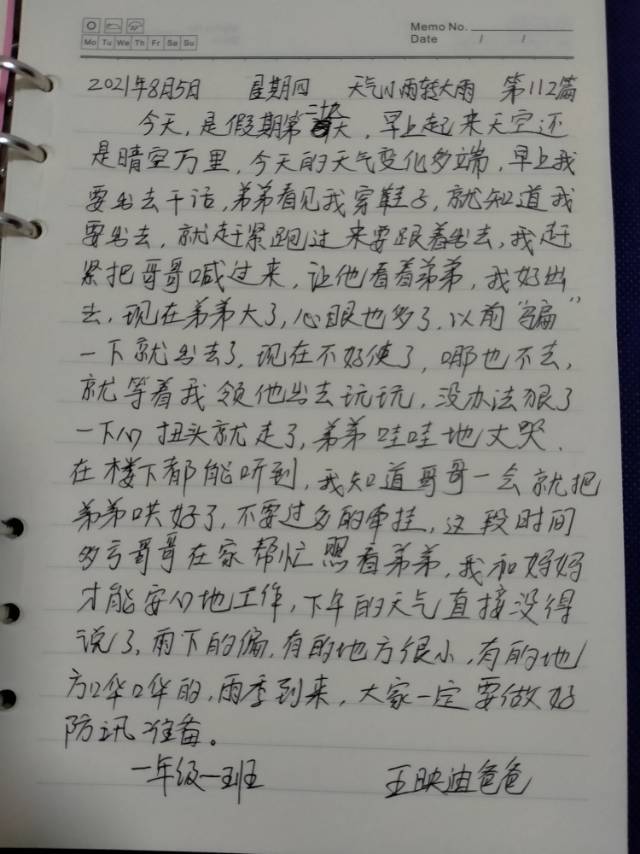 Memo No.
Mo Tu We Th Fr Sa Su
Date / /
2021年8月5日 星期四 天气小雨转大雨 第112篇
今天,是假期第二十九天,早上起来天空还
是晴空万里,今天的天气变化多端,早上我
要出去干活,弟弟看见我穿鞋子,就知道我
要出去,就赶紧跑过来要跟着出去,我赶
紧把哥哥喊过来,让他看着弟弟,我好出
去,现在弟弟大了,心眼也多了,以前“骗”
一下就出去了,现在不好使了,哪也不去,
就等着我领他出去玩玩,没办法狠了
一下心扭头就走了,弟弟哇哇地大哭,
在楼下都能听到,我知道哥哥一会就把
弟弟哄好了,不要过多的牵挂,这段时间
多亏哥哥在家帮忙照看弟弟,我和妈妈
才能安心地工作,下午的天气直接没得
说了,雨下的偏,有的地方很小,有的地
方哗哗的,雨季到来,大家一定要做好
防讯准备。
一年级一班 王映迪爸爸